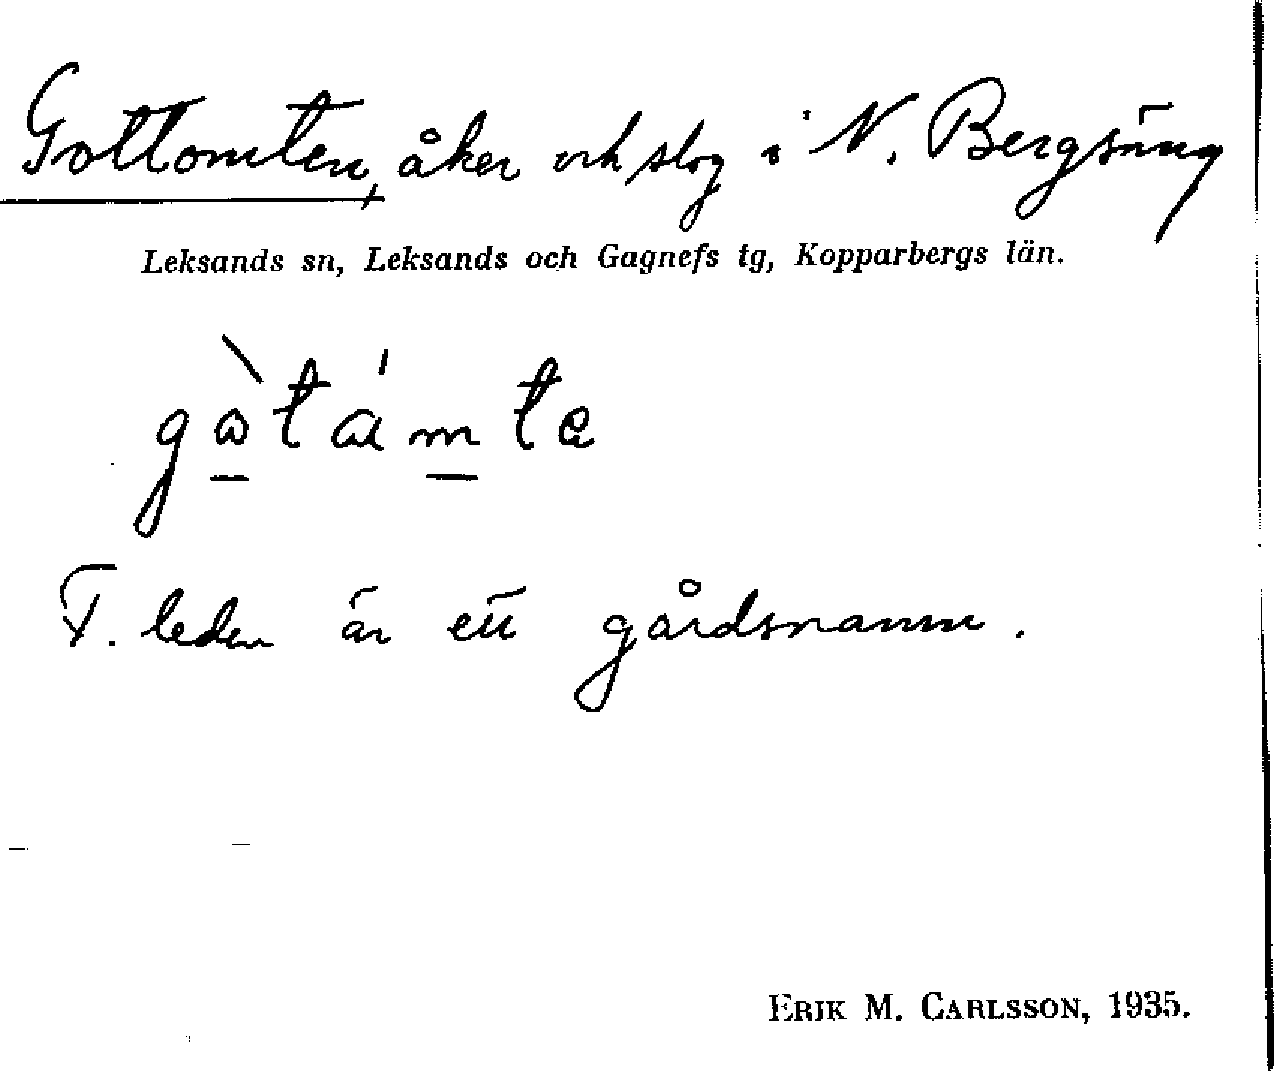 Gottomten, åker och slog i N. Bergsäng
Leksands sn, Leksands och Gagnefs tg, Kopparbergs län.
F. leden är ett gårdsnamn.
ERIK M. CARLSSON, 1935.